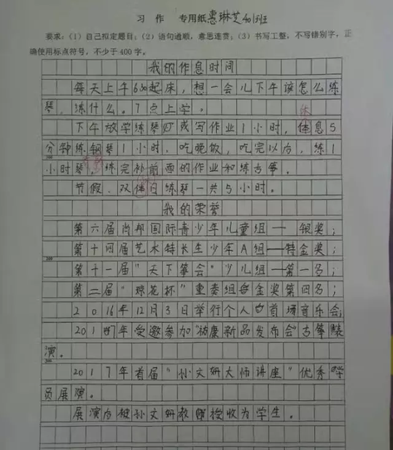 习 作 专用纸 惠琳芝 四15班
要求:(1)自己拟定题目;(2)语句通顺,意思连贯;(3)书写工整,不写错别字,正
确使用标点符号,不少于400字。
我的作息时间
每天上午6:30起床,想一会儿下午该怎么练
琴、练什么。7点上学。
下午放学练琴或写作业1小时,休息5
分钟练钢琴1小时。吃晚饭,吃完以后,练1
小时琴。练完补前面的作业和练古筝。
节假、双休日练琴一共5小时。
我的荣誉
第六届肖邦国际青少年儿童组——银奖;
第十四届艺术特长生少年A组——特金奖;
第十一届"天下筝会"少儿组——第一名;
第二届"琼花杯"重奏组金奖第四名;
2016年12月3日举行个人首场音乐会;
2017年受邀参加 新品发布会古筝
演。
2017年首届"孙文妍大师讲座"优秀学
员展演。
展演后被孙文妍教授接收为学生。